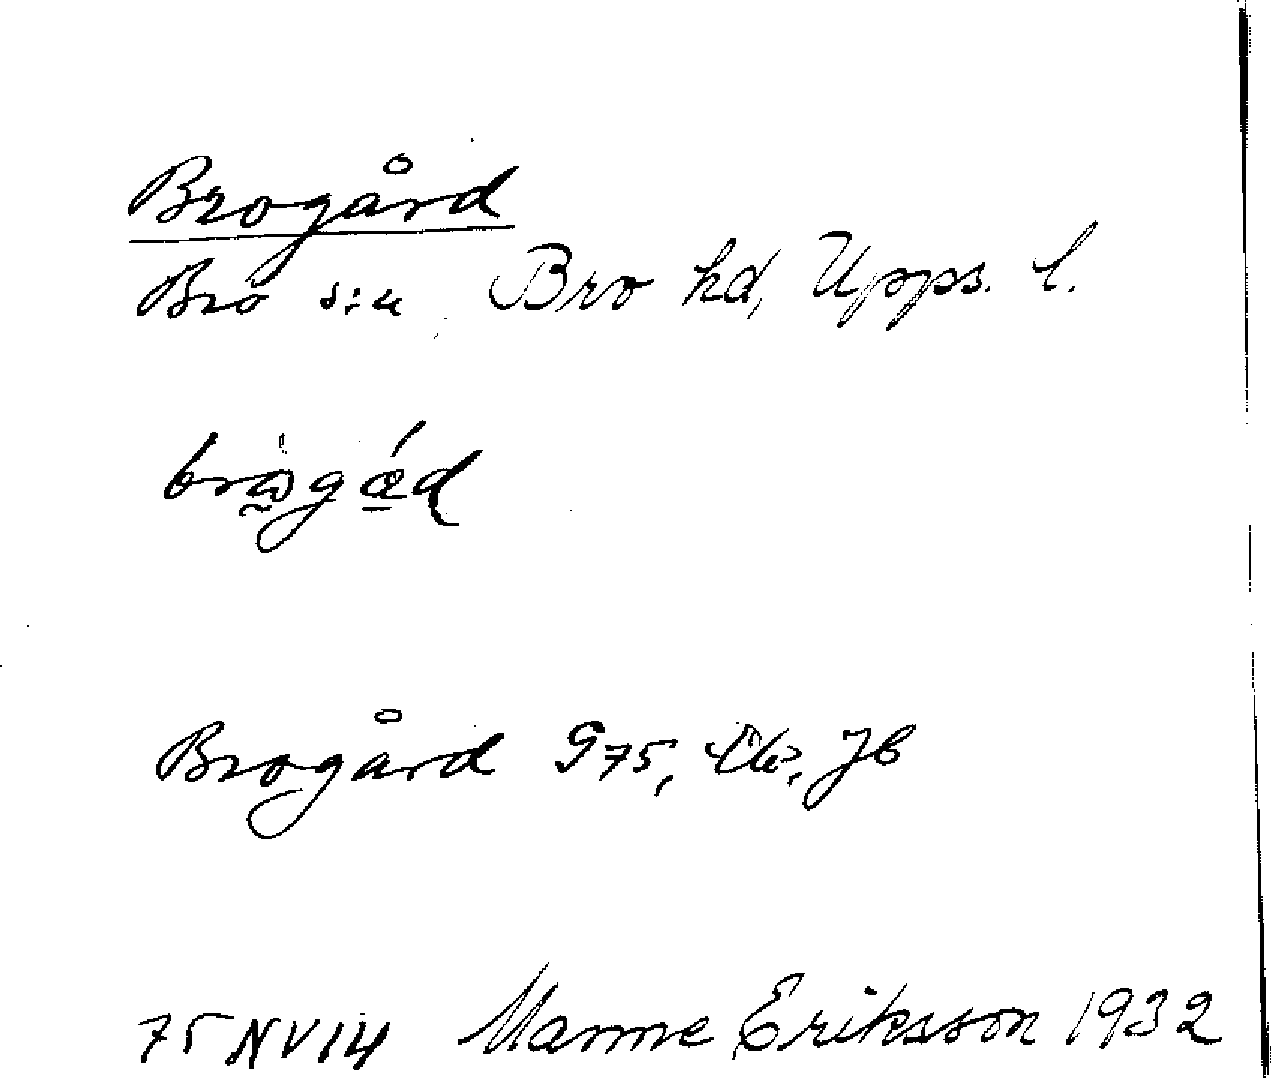 Brogård
Bro sn Bro hd, Upps. l.
Brogård G75, JB
75 NV 14 Manne Eriksson 1932